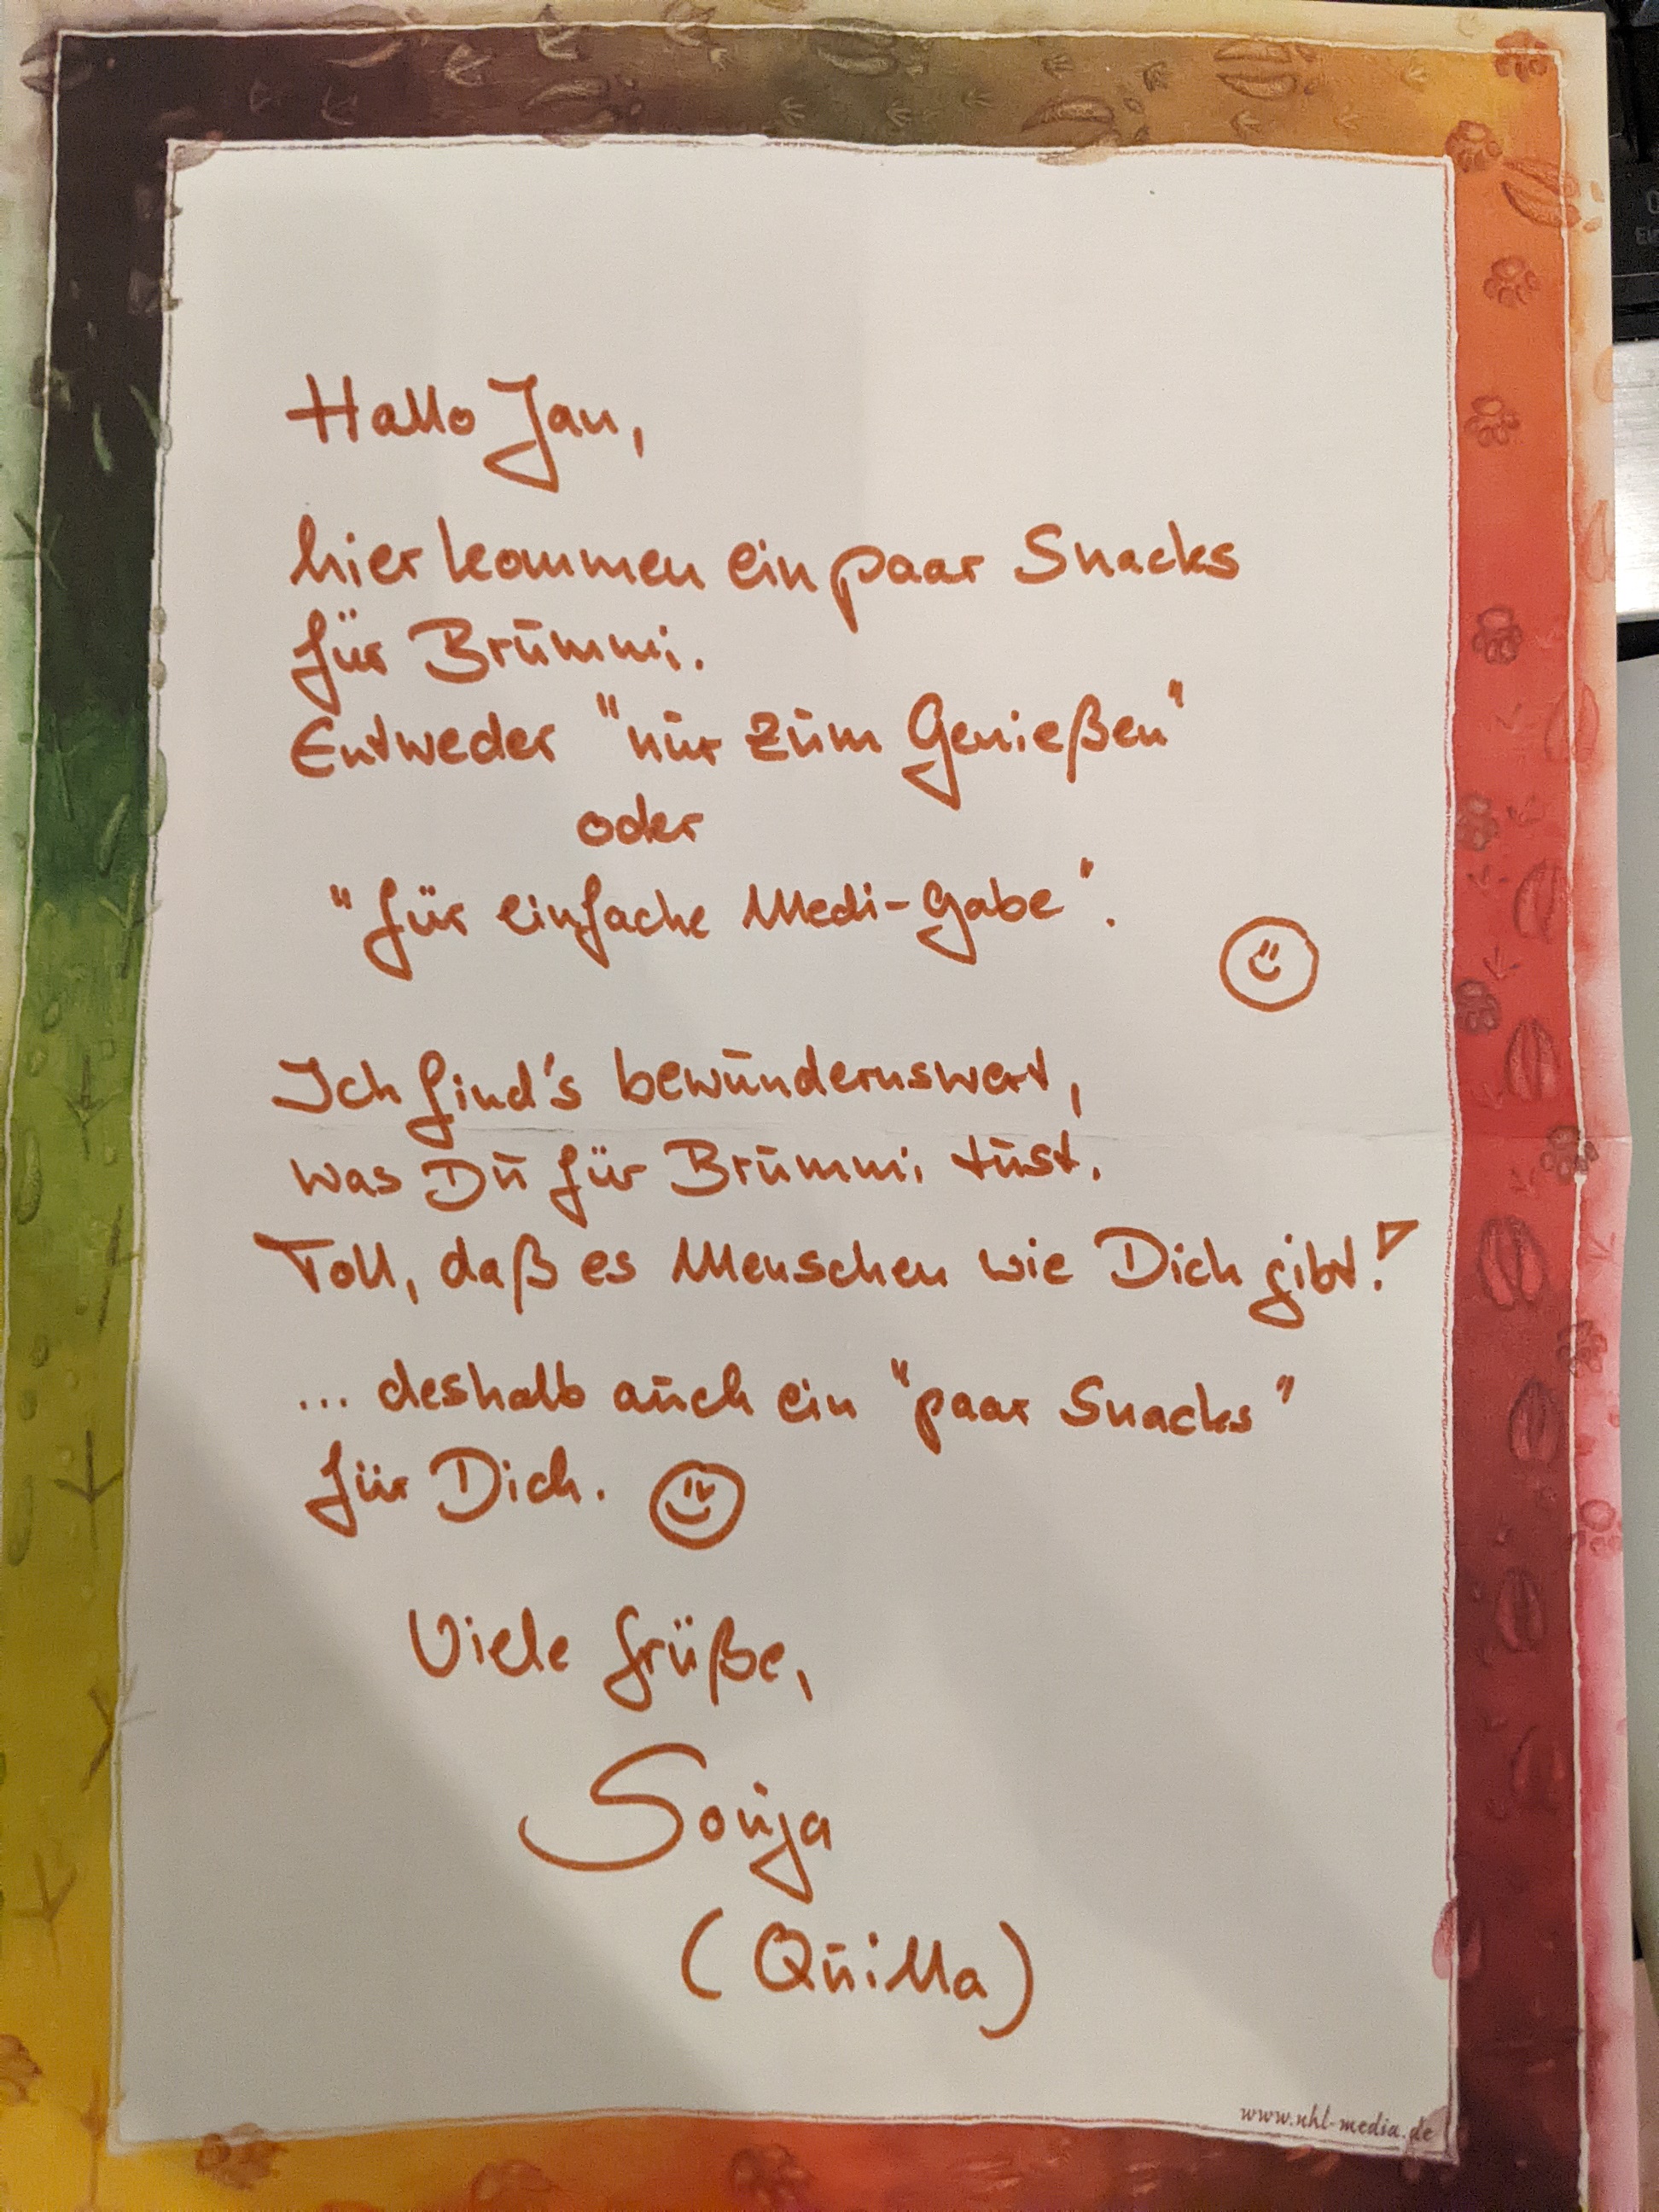 Hallo Jan,
hier kommen ein paar Snacks
für Brummi.
Entweder "nur zum Genießen"
oder
"für einfache Medi-Gabe".
Ich find's bewundernswert,
was Du für Brummi tust.
Toll, daß es Menschen wie Dich gibt!
... deshalb auch ein "paar Snacks"
für Dich.
Viele Grüße,
Sonja
(Quilla)
www.uhl-media.de